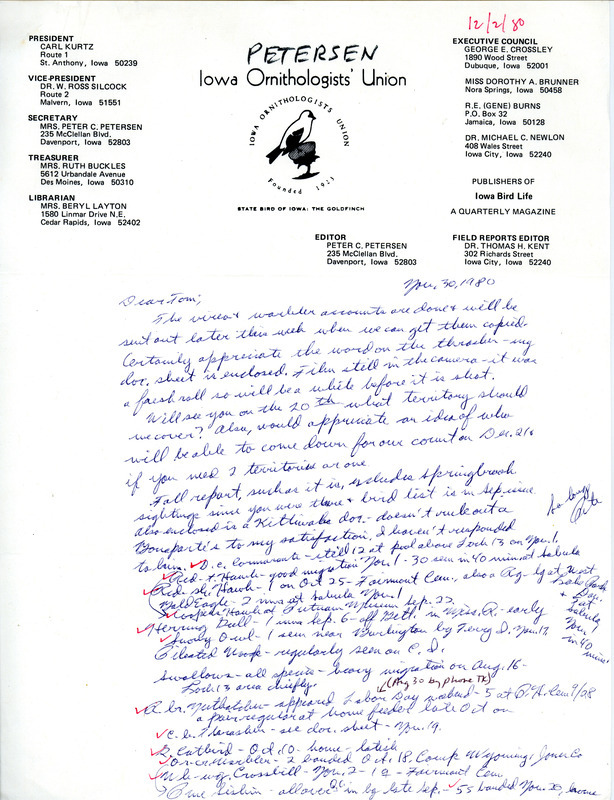 12/2/80
PETERSEN
Iowa Ornithologists' Union
IOWA ORNITHOLOGISTS UNION
Founded 1923
STATE BIRD OF IOWA: THE GOLDFINCH
PRESIDENT
CARL KURTZ
Route 1
St. Anthony, Iowa 50239
VICE-PRESIDENT
DR. W. ROSS SILCOCK
Route 2
Malvern, Iowa 51551
SECRETARY
MRS. PETER C. PETERSEN
235 McClellan Blvd.
Davenport, Iowa 52803
TREASURER
MRS. RUTH BUCKLES
5612 Urbandale Avenue
Des Moines, Iowa 50310
LIBRARIAN
MRS. BERYL LAYTON
1580 Linmar Drive N.E.
Cedar Rapids, Iowa 52402
EXECUTIVE COUNCIL
GEORGE E. CROSSLEY
1890 Wood Street
Dubuque, Iowa 52001
MISS DOROTHY A. BRUNNER
Nora Springs, Iowa 50458
R.E. (GENE) BURNS
P.O. Box 32
Jamaica, Iowa 50128
DR. MICHAEL C. NEWLON
408 Wales Street
Iowa City, Iowa 52240
PUBLISHERS OF
Iowa Bird Life
A QUARTERLY MAGAZINE
EDITOR
PETER C. PETERSEN
235 McClellan Blvd.
Davenport, Iowa 52803
FIELD REPORTS EDITOR
DR. THOMAS H. KENT
302 Richards Street
Iowa City, Iowa 52240
Nov. 30, 1980
Dear Tom;
The vireo & warbler accounts are done & will be
sent out later this week when we can get them copied.
Certainly appreciate the word on the thrasher - my
doc. sheet is enclosed. Film still in the camera - it was
a fresh roll so will be a while before it is shot.
Will see you on the 20th - what territory should
we cover? Also, would appreciate an idea of who
will be able to come down for our count on Dec. 21 &
if you need 2 territories or one.
Fall report, such as it is, excludes Springbrook
sightings since you were there & bird list is in Sep. issue
also enclosed is a Kittiwake doc. - doesn't rule out a
Bonaparte's to my satisfaction, I haven't responded
to him.
So long
Pete
D.c. Cormorant - still 12 at pool above Lock 13 on Nov. 1
Red-t. Hawk - good migration Nov. 1 - 30 seen in 40 min at Sabula
Red-sh. Hawk - 1 on Oct 25 - Fairmont Cem., also a
Bald Eagle - 2 imm at Sabula Nov. 1
Cooper's Hawk at Putnam Museum Sep. 22
Herring Gull - 1 imm Sep. 6 - off Bett. in Miss. R. - early
Snowy Owl - 1 seen near Burlington by Terry D. Nov. 17
Pileated Wdp. - regularly seen on C. I.
Swallows - all species - heavy migration on Aug. 16 -
Lock 13 area chiefly.
(Aug 30 by phone TK)
R. br. Nuthatch - appeared Labor Day weekend - 5 at P. H. Cem 9/28
a pair regular at home feeder late Oct on
C. b. Thrasher - see doc. sheet - Nov. 19.
G. Catbird - Oct. 10 - home - latish
Or-cr Warbler - 2 banded Oct. 18, Camp Wyoming, Jones Co
W-wg. Crossbill - Nov. 2 - 1 - Fairmont Cem.
Pine Siskin - all over Q.C. in by late Sep. - 55 banded Nov. 29, home